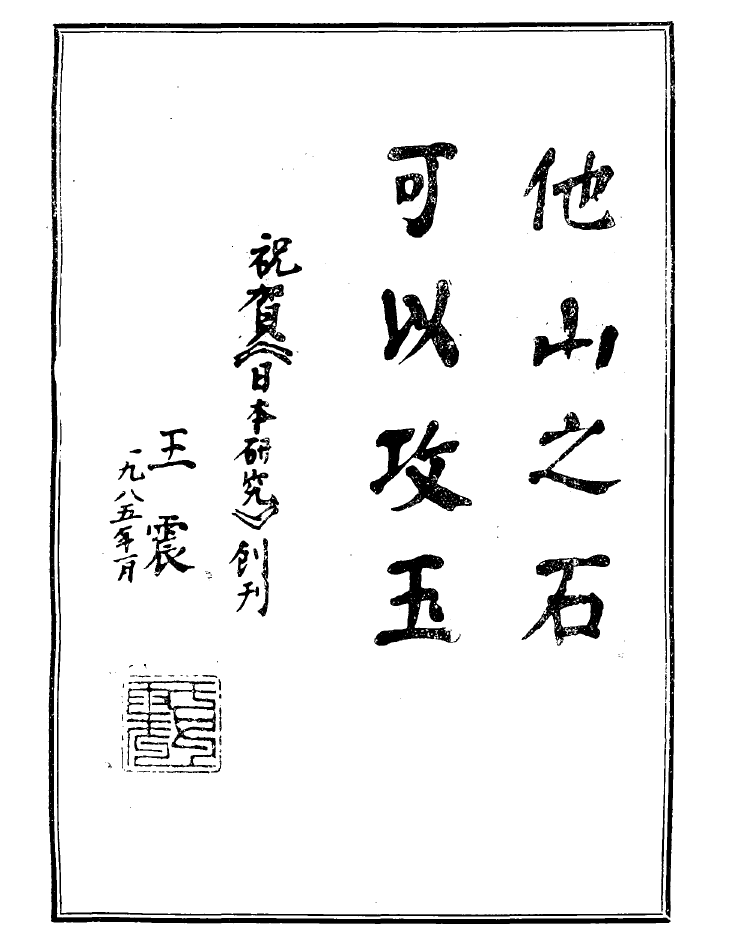 他山之石
可以攻玉
祝賀《日本研究》創刊
王震
一九八五年一月